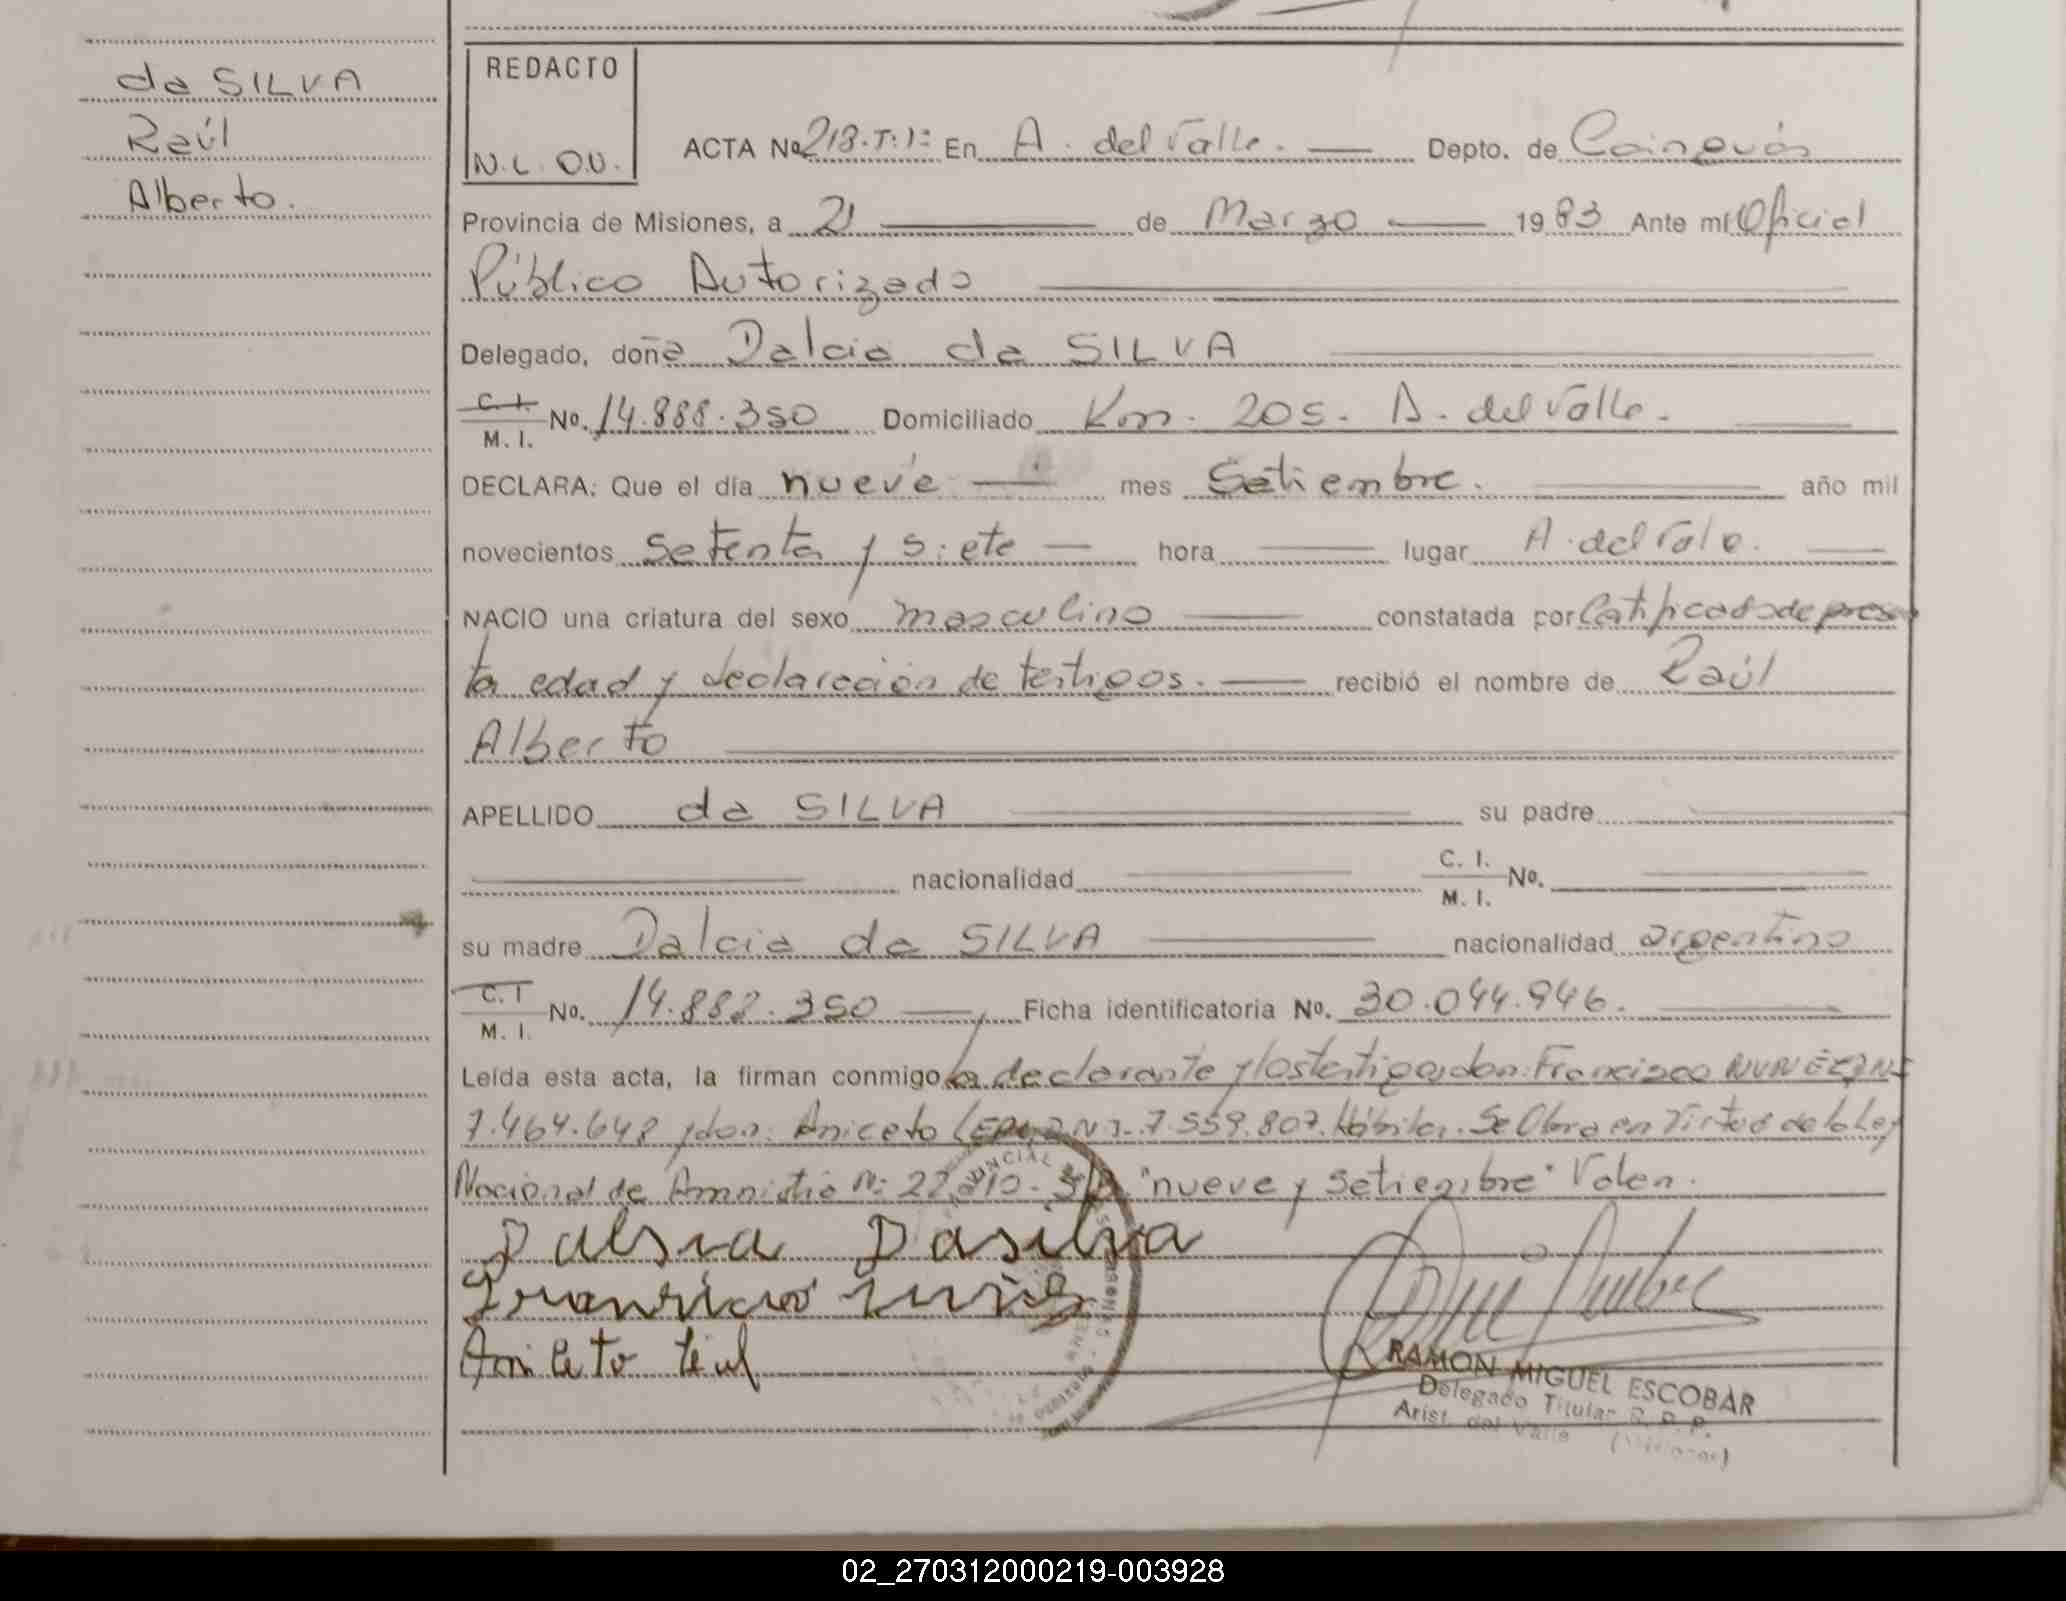 da SILVA
Raúl
Alberto.
REDACTO
N.L. O.U.
ACTA No 218.T.1º En A. del Valle. Depto. de Cainguás
Provincia de Misiones, a 21 de Marzo 1983 Ante mi Oficial
Público Autorizado
Delegado, doña Dalcia da SILVA
C. I.
M. I. No. 14.888.350 Domiciliado Km. 205. A. del Valle.
DECLARA: Que el día nueve mes Setiembre. año mil
novecientos setenta y siete hora lugar A. del Valle.
NACIO una criatura del sexo masculino constatada por Certificado de presun
ta edad y declaración de testigos. recibió el nombre de Raúl
Alberto
APELLIDO da SILVA su padre
nacionalidad C. I.
M. I. No.
su madre Dalcia da SILVA nacionalidad argentina
C. I
M. I. No. 14.888.350 Ficha identificatoria No. 30.044.946.
Leída esta acta, la firman conmigo la declarante y los testigos don: Francisco
7.464.648 y don: Aniceto 7.559.807. Hábiles. Se Obra en Virtud de la Ley
Nacional de Amnistia Nº "nueve y setiembre" Valen.
Dalsia Dasilva
RAMON MIGUEL ESCOBAR
Delegado Titular R. P. P.
Arist. del Valle (Misiones)
02_270312000219-003928